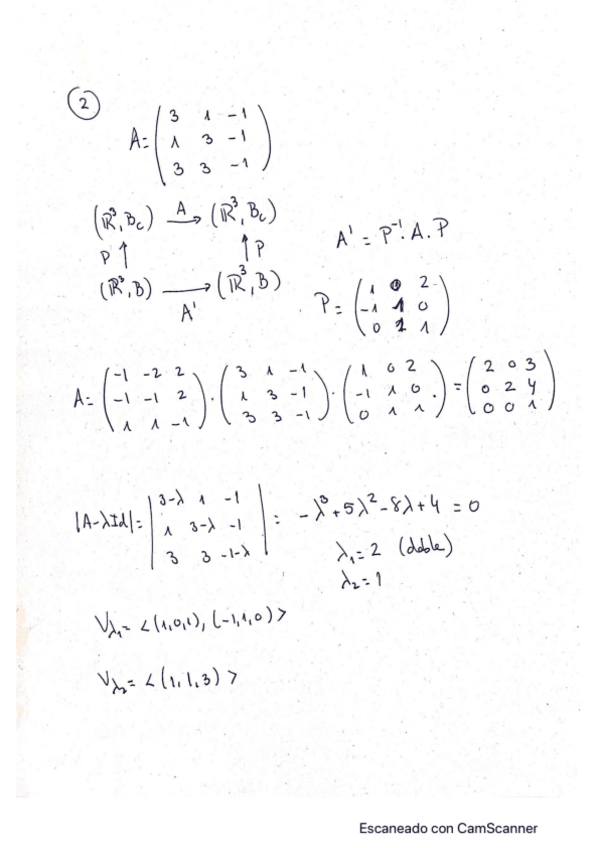 2
A = ( 3 1 -1
1 3 -1
3 3 -1 )
(ℝ³, Bc) —A→ (ℝ³, Bc)
P ↑ ↑ P
(ℝ³, B) —→ (ℝ³, B)
A'
A' = P⁻¹. A . P
P = ( 1 0 2
-1 1 0
0 1 1 )
A = ( -1 -2 2
-1 -1 2
1 1 -1 ) · ( 3 1 -1
1 3 -1
3 3 -1 ) · ( 1 0 2
-1 1 0
0 1 1 ) = ( 2 0 3
0 2 4
0 0 1 )
|A-λId| = | 3-λ 1 -1
1 3-λ -1
3 3 -1-λ | = -λ³+5λ²-8λ+4 = 0
λ₁=2 (doble)
λ₂=1
Vλ₁= <(1,0,1), (-1,1,0)>
Vλ₂= <(1,1,3)>
Escaneado con CamScanner